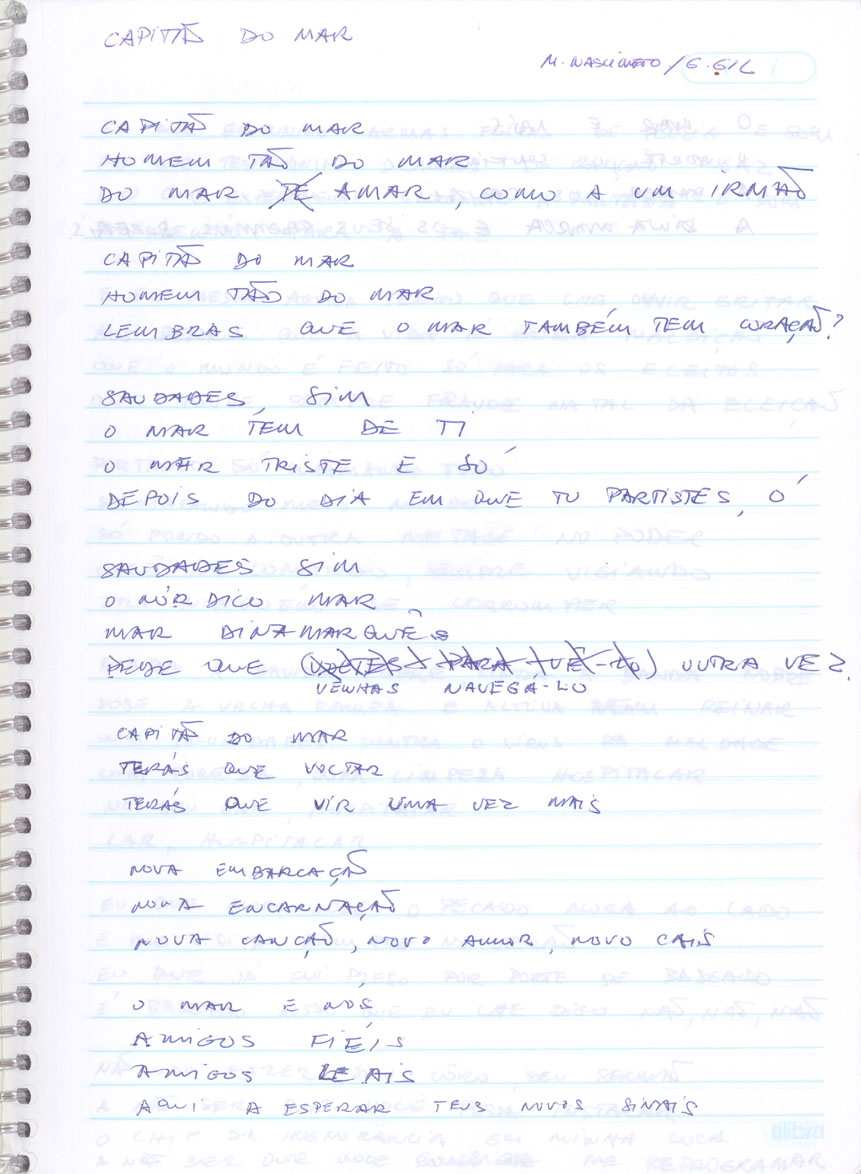 CAPITÃO DO MAR
M. NASCIMETO / G. GIL
CAPITÃO DO MAR
HOMEM TÃO DO MAR
DO MAR TE AMAR, COMO A UM IRMÃO
CAPITÃO DO MAR
HOMEM TÃO DO MAR
LEMBRAS QUE O MAR TAMBÉM TEM CORAÇÃO?
SAUDADES, SIM
O MAR TEM DE TI
O MAR TRISTE E SÓ
DEPOIS DO DIA EM QUE TU PARTISTES, Ó
SAUDADES SIM
O NÓRDICO MAR
MAR DINAMARQUÊS
PEDE QUE ( ) OUTRA VEZ.
VENHAS NAVEGÁ-LO
CAPITÃO DO MAR
TERÁS QUE VOLTAR
TERÁS QUE VIR UMA VEZ MAIS
NOVA EMBARCAÇÃO
NOVA ENCARNAÇÃO
NOVA CANÇÃO, NOVO AMOR, NOVO CAIS
O MAR E NÓS
AMIGOS FIÉIS
AMIGOS LEAIS
AQUI A ESPERAR TEUS NOVOS SINAIS
tilibra